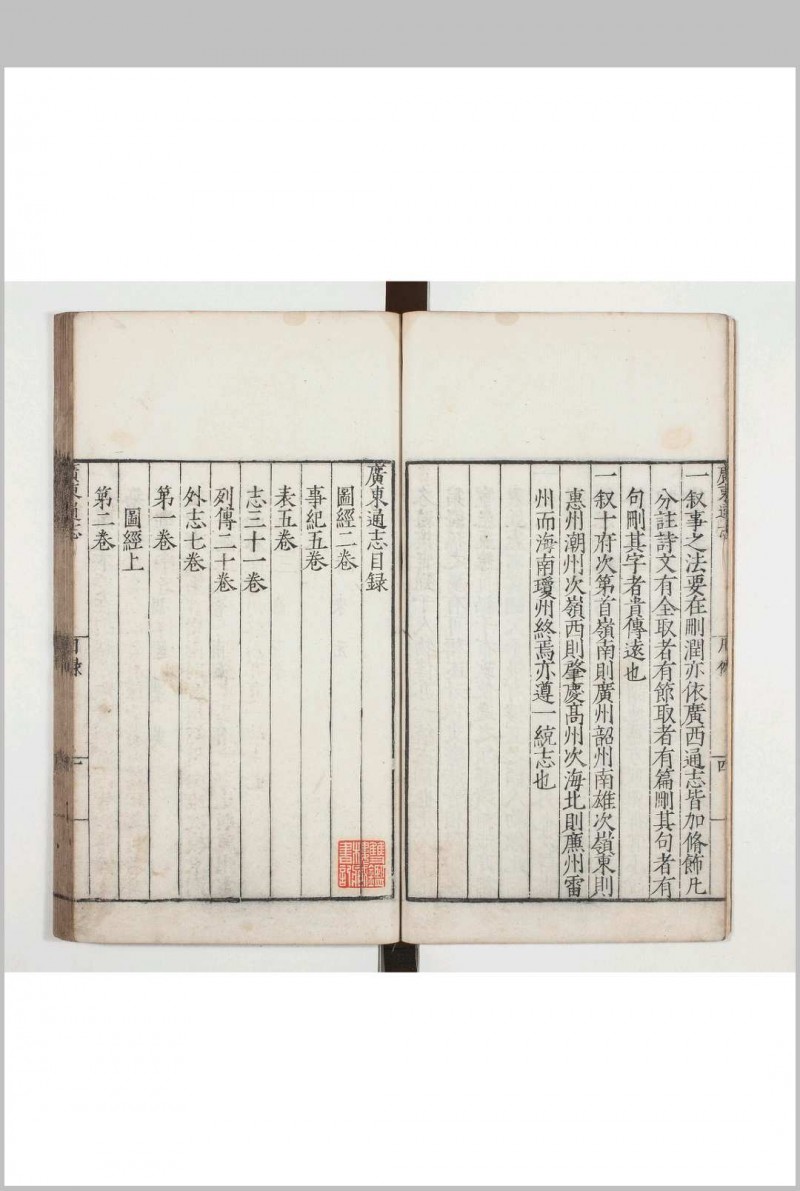 廣東通志
凡例
四
一叙事之法要在刪潤亦依廣西通志皆加脩飾凡
分註詩文有全取者有節取者有篇刪其句者有
句刪其字者貴傳遠也
一叙十府次第首嶺南則廣州韶州南雄次嶺東則
惠州潮州次嶺西則肇慶高州次海北則廉州雷
州而海南瓊州終焉亦遵一統志也
廣東通志目録
圖經二卷
事紀五卷
表五卷
志三十一卷
列傳二十卷
外志七卷
第一卷
圖經上
第二卷
廣東通志
目録
一